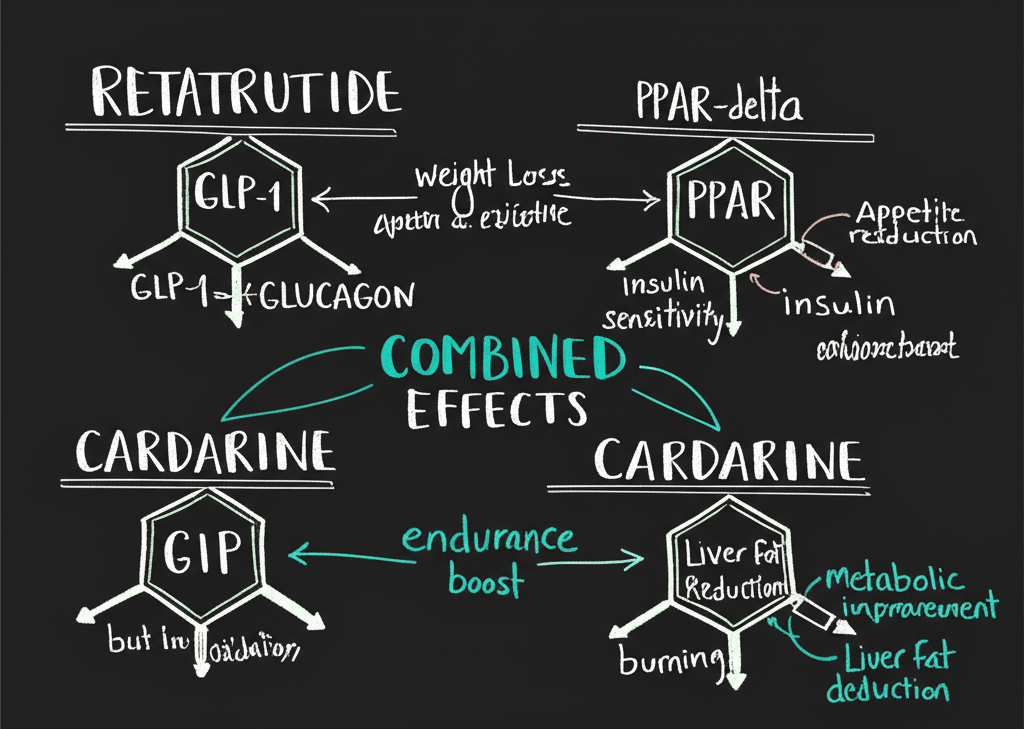 RETATRUTIDE
PPAR-delta
GLP-1
Weight Loss
PPAR
Appetite
reduction
GLP-1
GLUCAGON
insulin
sensitivity
insulin
COMBINED
EFFECTS
CARDARINE
CARDARINE
GIP
endurance
boost
Liver Fat
Reduction
Metabolic
but in
burning
Liver fat
deduction